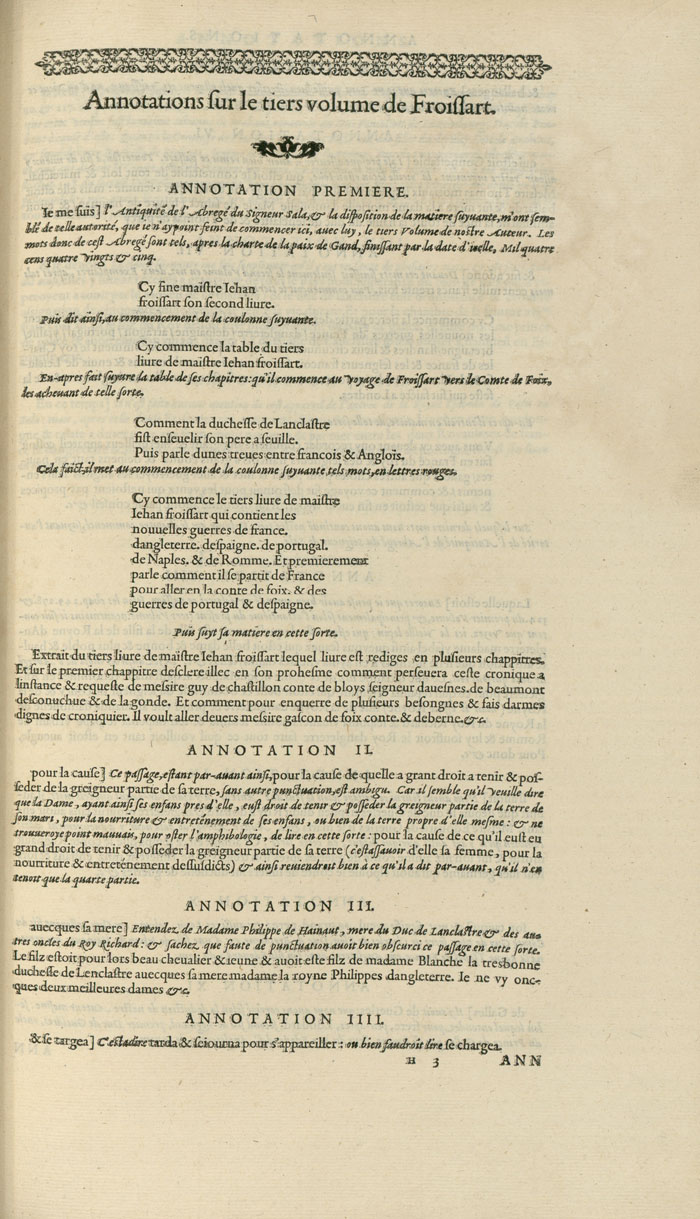 Annotations ſur le tiers volume de Froiſſart.
ANNOTATION PREMIERE.
Ie me ſuis] l'Antiquité de l'Abregé du Signeur Sala, & la diſpoſition de la matiere ſuyuante, m'ont ſem-
blé de telle autorité, que ie n'ay point feint de commencer ici, auec luy, le tiers Volume de noſtre Auteur. Les
mots donc de ceſt Abregé ſont tels, apres la charte de la paix de Gand, finiſſant par la date d'icelle, Mil quatre
cens quatre Vingts & cinq.
Cy fine maiſtre Iehan
froiſſart ſon second liure.
Puis dit ainſi, au commencement de la coulonne ſuyuante.
Cy commence la table du tiers
liure de maiſtre Iehan froiſſart.
En-apres fait ſuyure la table de ſes chapitres: qu'il commence au Voyage de Froiſſart Vers le Comte de Foix,
les acheuant de telle ſorte.
Comment la ducheſſe de Lanclaſtre
fiſt enſeuelir ſon pere a ſeuille.
Puis parle dunes treues entre francois & Anglois.
Cela faict, il met au commencement de la coulonne ſuyuante tels mots, en lettres rouges.
Cy commence le tiers liure de maiſtre
Iehan froiſſart qui contient les
nouuelles guerres de france.
dangleterre. deſpaigne. de portugal.
de Naples. & de Romme. Et premierement
parle comment il ſe partit de France
pour aller en la conte de foix. & des
guerres de portugal & deſpaigne.
Puis ſuyt ſa matiere en cette ſorte.
Extrait du tiers liure de maiſtre Iehan froiſſart lequel liure eſt rediges en pluſieurs chappitres.
Et ſur le premier chappitre deſclere illec en ſon proheſme comment perſeuera ceſte cronique a
linſtance & requeſte de meſsire guy de chaſtillon conte de bloys ſeigneur daueſnes. de beaumont
deſconuchue & de la gonde. Et comment pour enquerre de pluſieurs beſongnes & fais darmes
dignes de croniquier. Il voult aller deuers meſsire gaſcon de foix conte. & deberne. &c.
ANNOTATION II.
pour la cauſe] Ce paſſage, eſtant par-auant ainſi, pour la cauſe de quelle a grant droit a tenir & poſ-
ſeder de la greigneur partie de ſa terre, ſans autre punctuation, eſt ambigu. Car il ſemble qu'il Veuille dire
que la Dame, ayant ainſi ſes enfans pres d'elle, euſt droit de tenir & poſſeder la greigneur partie de la terre de
ſon mari, pour la nourriture & entreténement de ſes enfans, ou bien de la terre propre d'elle meſme: & ne
trouueroye point mauuais, pour oſter l'amphibologie, de lire en cette ſorte: pour la cauſe de ce qu'il euſt eu
grand droit de tenir & poſſeder la greigneur partie de ſa terre (c'eſtaſſauoir d'elle ſa femme, pour la
nourriture & entreténement deſſuſdicts) & ainſi reuiendroit bien à ce qu'il a dit par-auant, qu'il n'en
tenoit que la quarte partie.
ANNOTATION III.
auecques ſa mere] Entendez de Madame Philippe de Hainaut, mere du Duc de Lanclaſtre & des au-
tres oncles du Roy Richard: & ſachez que faute de punctuation auoit bien obſcurci ce paſſage en cette ſorte.
Le filz eſtoit pour lors beau cheualier & ieune & auoit eſte filz de madame Blanche la tresbonne
ducheſſe de Lenclaſtre auecques ſa mere madame la royne Philippes dangleterre. Ie ne vy onc-
ques deux meilleures dames &c.
ANNOTATION IIII.
& ſe targea] C'eſtadire tarda & ſeiourna pour s'appareiller: ou bien faudroit lire ſe chargea.
H 3 ANN